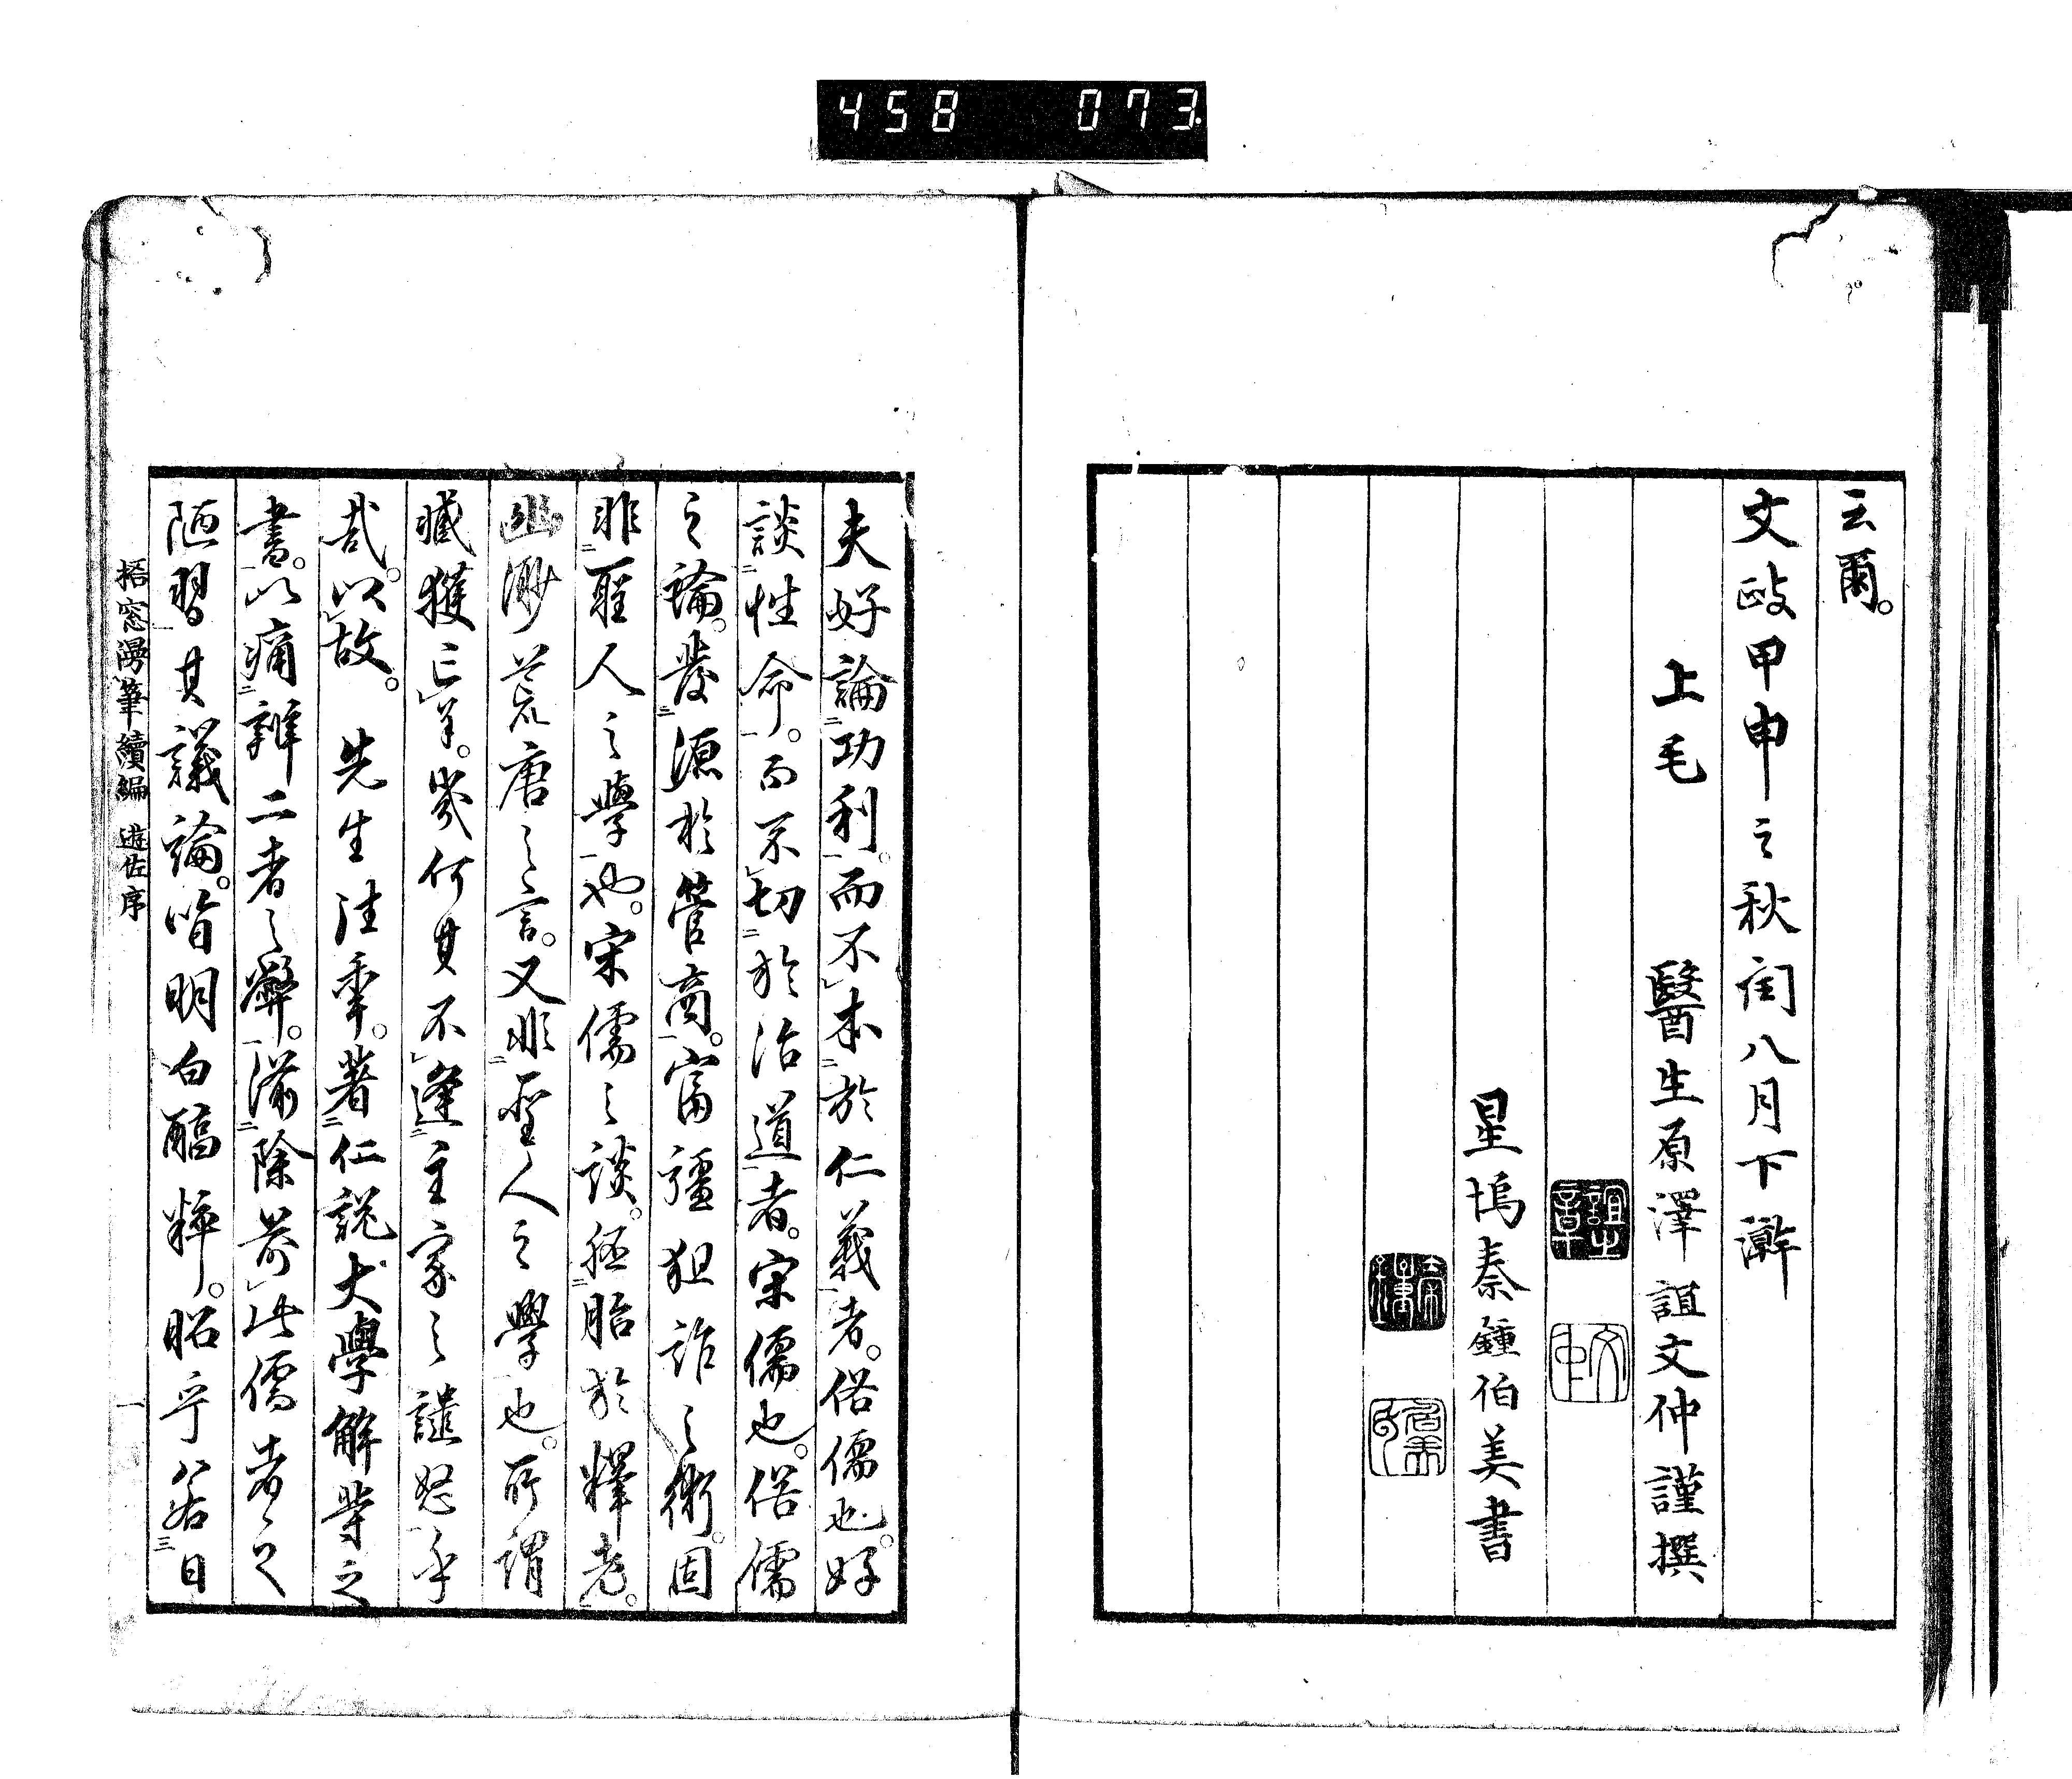 458 073
云爾。
文政甲申之秋閏八月下澣
上毛 醫生原澤誼文仲謹撰
星塢秦鍾伯美書
夫好論功利。而不本於仁義者。俗儒也。好
談性命。而不切於治道者。宋儒也。俗儒
之論。發源於管商。富彊狙詐之術。固
非聖人之學也。宋儒之談。胚胎於釋老。
幽渺荒唐之言。又非聖人之學也。所謂
臧獲亡羊。幾何其不逢主家之譴怒乎
哉。以故。先生往年。著仁說大學解等之
書。以痛辨二者之弊。滌除此儒者之
陋習其議論。皆明白醇粹。昭乎若日
梧窓漫筆續編 遊佐序 一